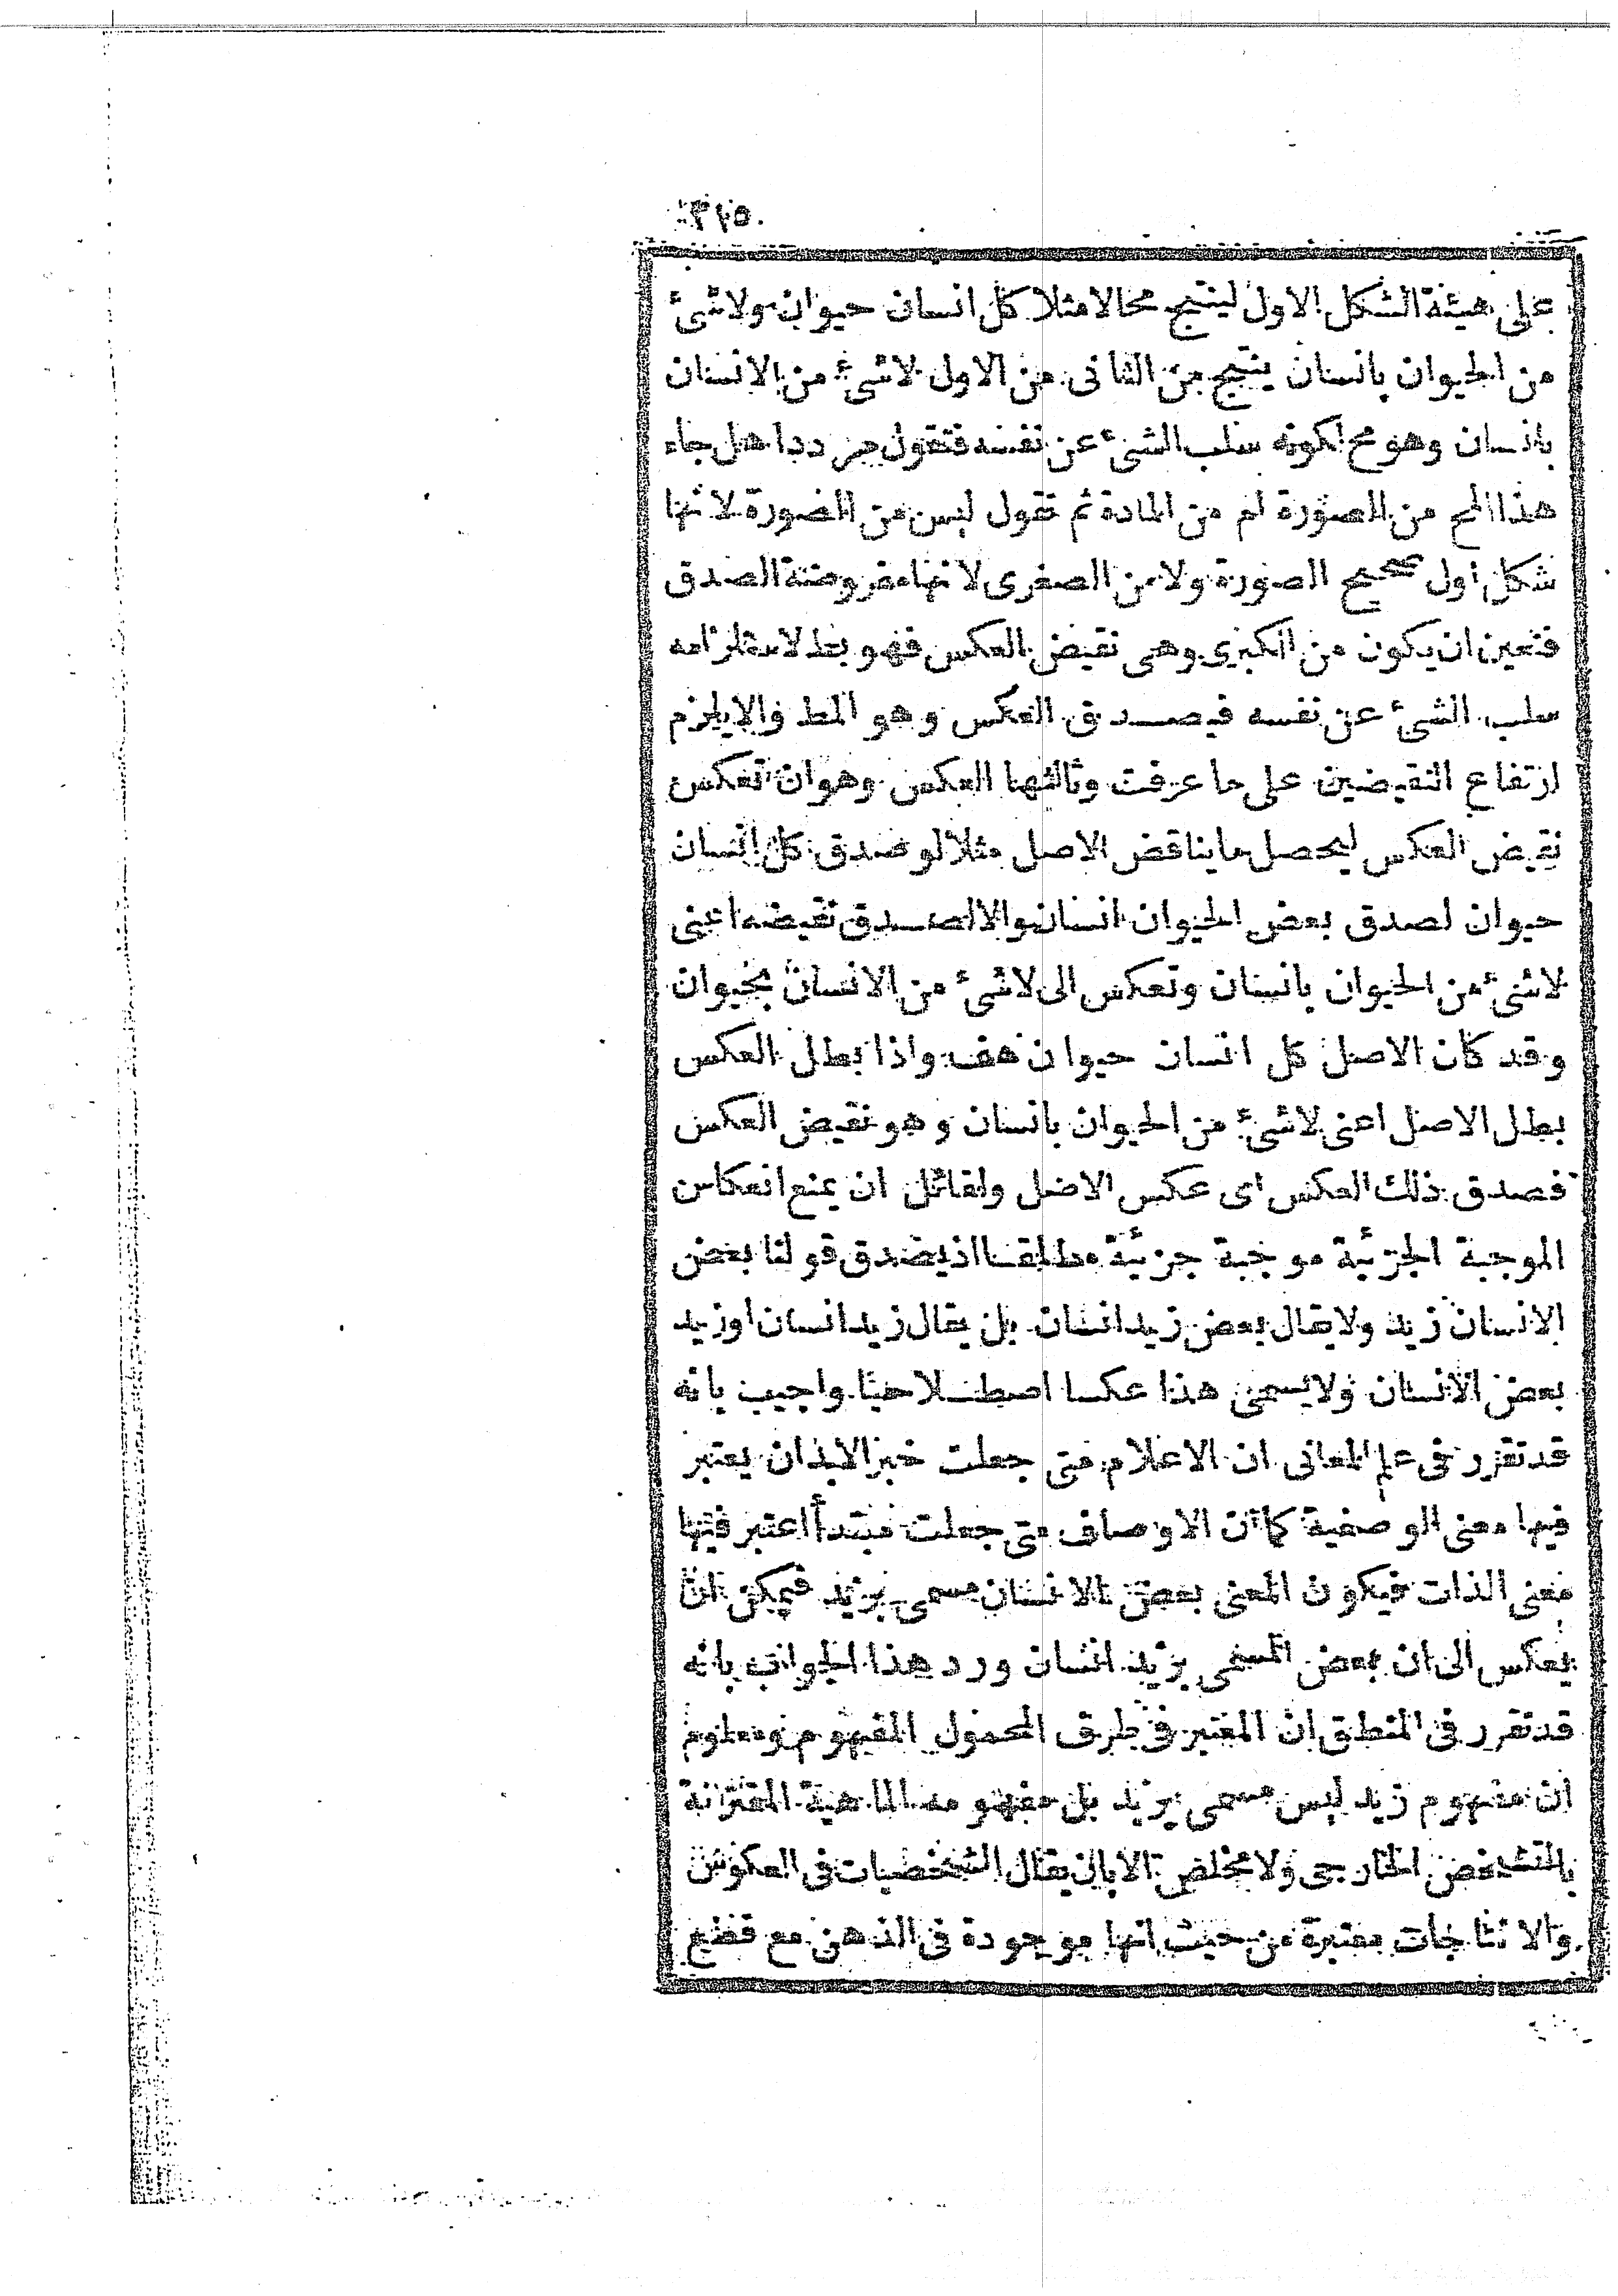 على هيئة الشكل الاول لينتج محالا مثلا كل انسان حيوان ولاشئ
من الحيوان بانسان ينتج من الثانى من الاول لاشئ من الانسان
بانسان وهو مح لكونه سلب الشئ عن نفسه فتقول هل جاء
هذا المح من الصورة ام من المادة ثم تقول ليس من الصورة لانها
شكل اول صحيح الصورة ولا من الصغرى لانها مفروضة الصدق
فتعين ان يكون من الكبرى وهى نقيض العكس فهو بط لاستلزامه
سلب الشئ عن نفسه فيصدق العكس وهو المط والا يلزم
ارتفاع النقيضين على ما عرفت وثالثها العكس وهو ان تعكس
نقيض العكس ليحصل ما يناقض الاصل مثلا لو صدق كل انسان
حيوان لصدق بعض الحيوان انسان والا لصدق نقيضه اعنى
لاشئ من الحيوان بانسان وتعكس الى لاشئ من الانسان بحيوان
وقد كان الاصل كل انسان حيوان هف واذا بطل العكس
بطل الاصل اعنى لاشئ من الحيوان بانسان وهو نقيض العكس
فصدق ذلك العكس اى عكس الاصل ولقائل ان يمنع انعكاس
الموجبة الجزئية موجبة جزئية مطلقا اذ يصدق قولنا بعض
الانسان زيد ولا يقال بعض زيد انسان بل يقال زيد انسان او زيد
بعض الانسان ولا يسمى هذا عكسا اصطلاحيا واجيب بانه
قد تقرر فى علم المعانى ان الاعلام متى جعلت خبرا لابد ان يعتبر
فيها معنى الوصفية كما ان الاوصاف متى جعلت مبتدأ اعتبر فيها
معنى الذات فيكون المعنى بعض الانسان مسمى بزيد فيمكن ان
يعكس الى ان بعض المسمى بزيد انسان ورد هذا الجواب بانه
قد تقرر فى المنطق ان المعتبر فى طرف المحمول المفهوم ومعلوم
ان مفهوم زيد ليس مسمى بزيد بل مفهومه الماهية المقترنة
بالتشخص الخارجى ولا مخلص الا بان يقال الشخصيات فى العكوس
والانتاجات معتبرة من حيث انها موجودة فى الذهن مع قطع